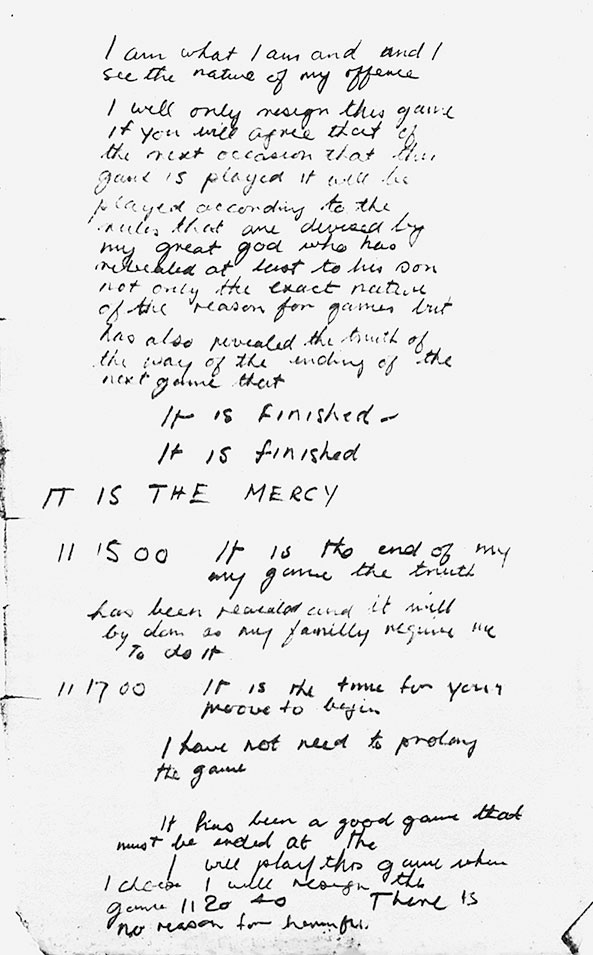 I am what I am and and I
see the nature of my offence
I will only resign this game
if you will agree that
the next occasion that this
game is played it will be
played according to the
rules that are devised by
my great god who has
revealed at last to his son
not only the exact nature
of the reason for games but
has also revealed the truth of
the way of the ending of the
next game that
It is finished –
It is finished
IT IS THE MERCY
11 15 00 It is the end of my
my game the truth
has been revealed and it will
by don as my familly require me
To do it
11 17 00 It is the time for your
moove to begin
I have not need to prolong
the game
It has been a good game that
must be ended at the
I will play this game when
I chose I will resign the
game 11 20 40 There is
no reason for